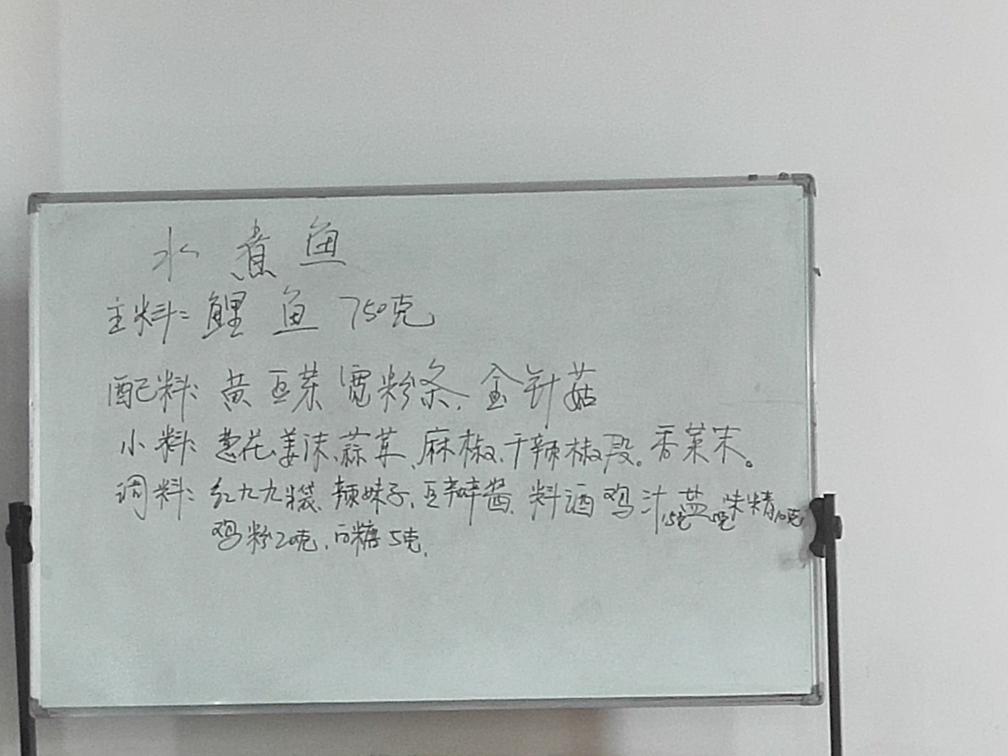 水煮鱼
主料: 鲤鱼 750克
配料: 黄豆芽 宽粉条、金针菇
小料: 葱花、姜沫、蒜茸、麻椒、干辣椒段。香菜末。
调料: 红九九 辣妹子、豆瓣酱、料酒 鸡汁15克 盐 味精10克
鸡粉20克、白糖5克、